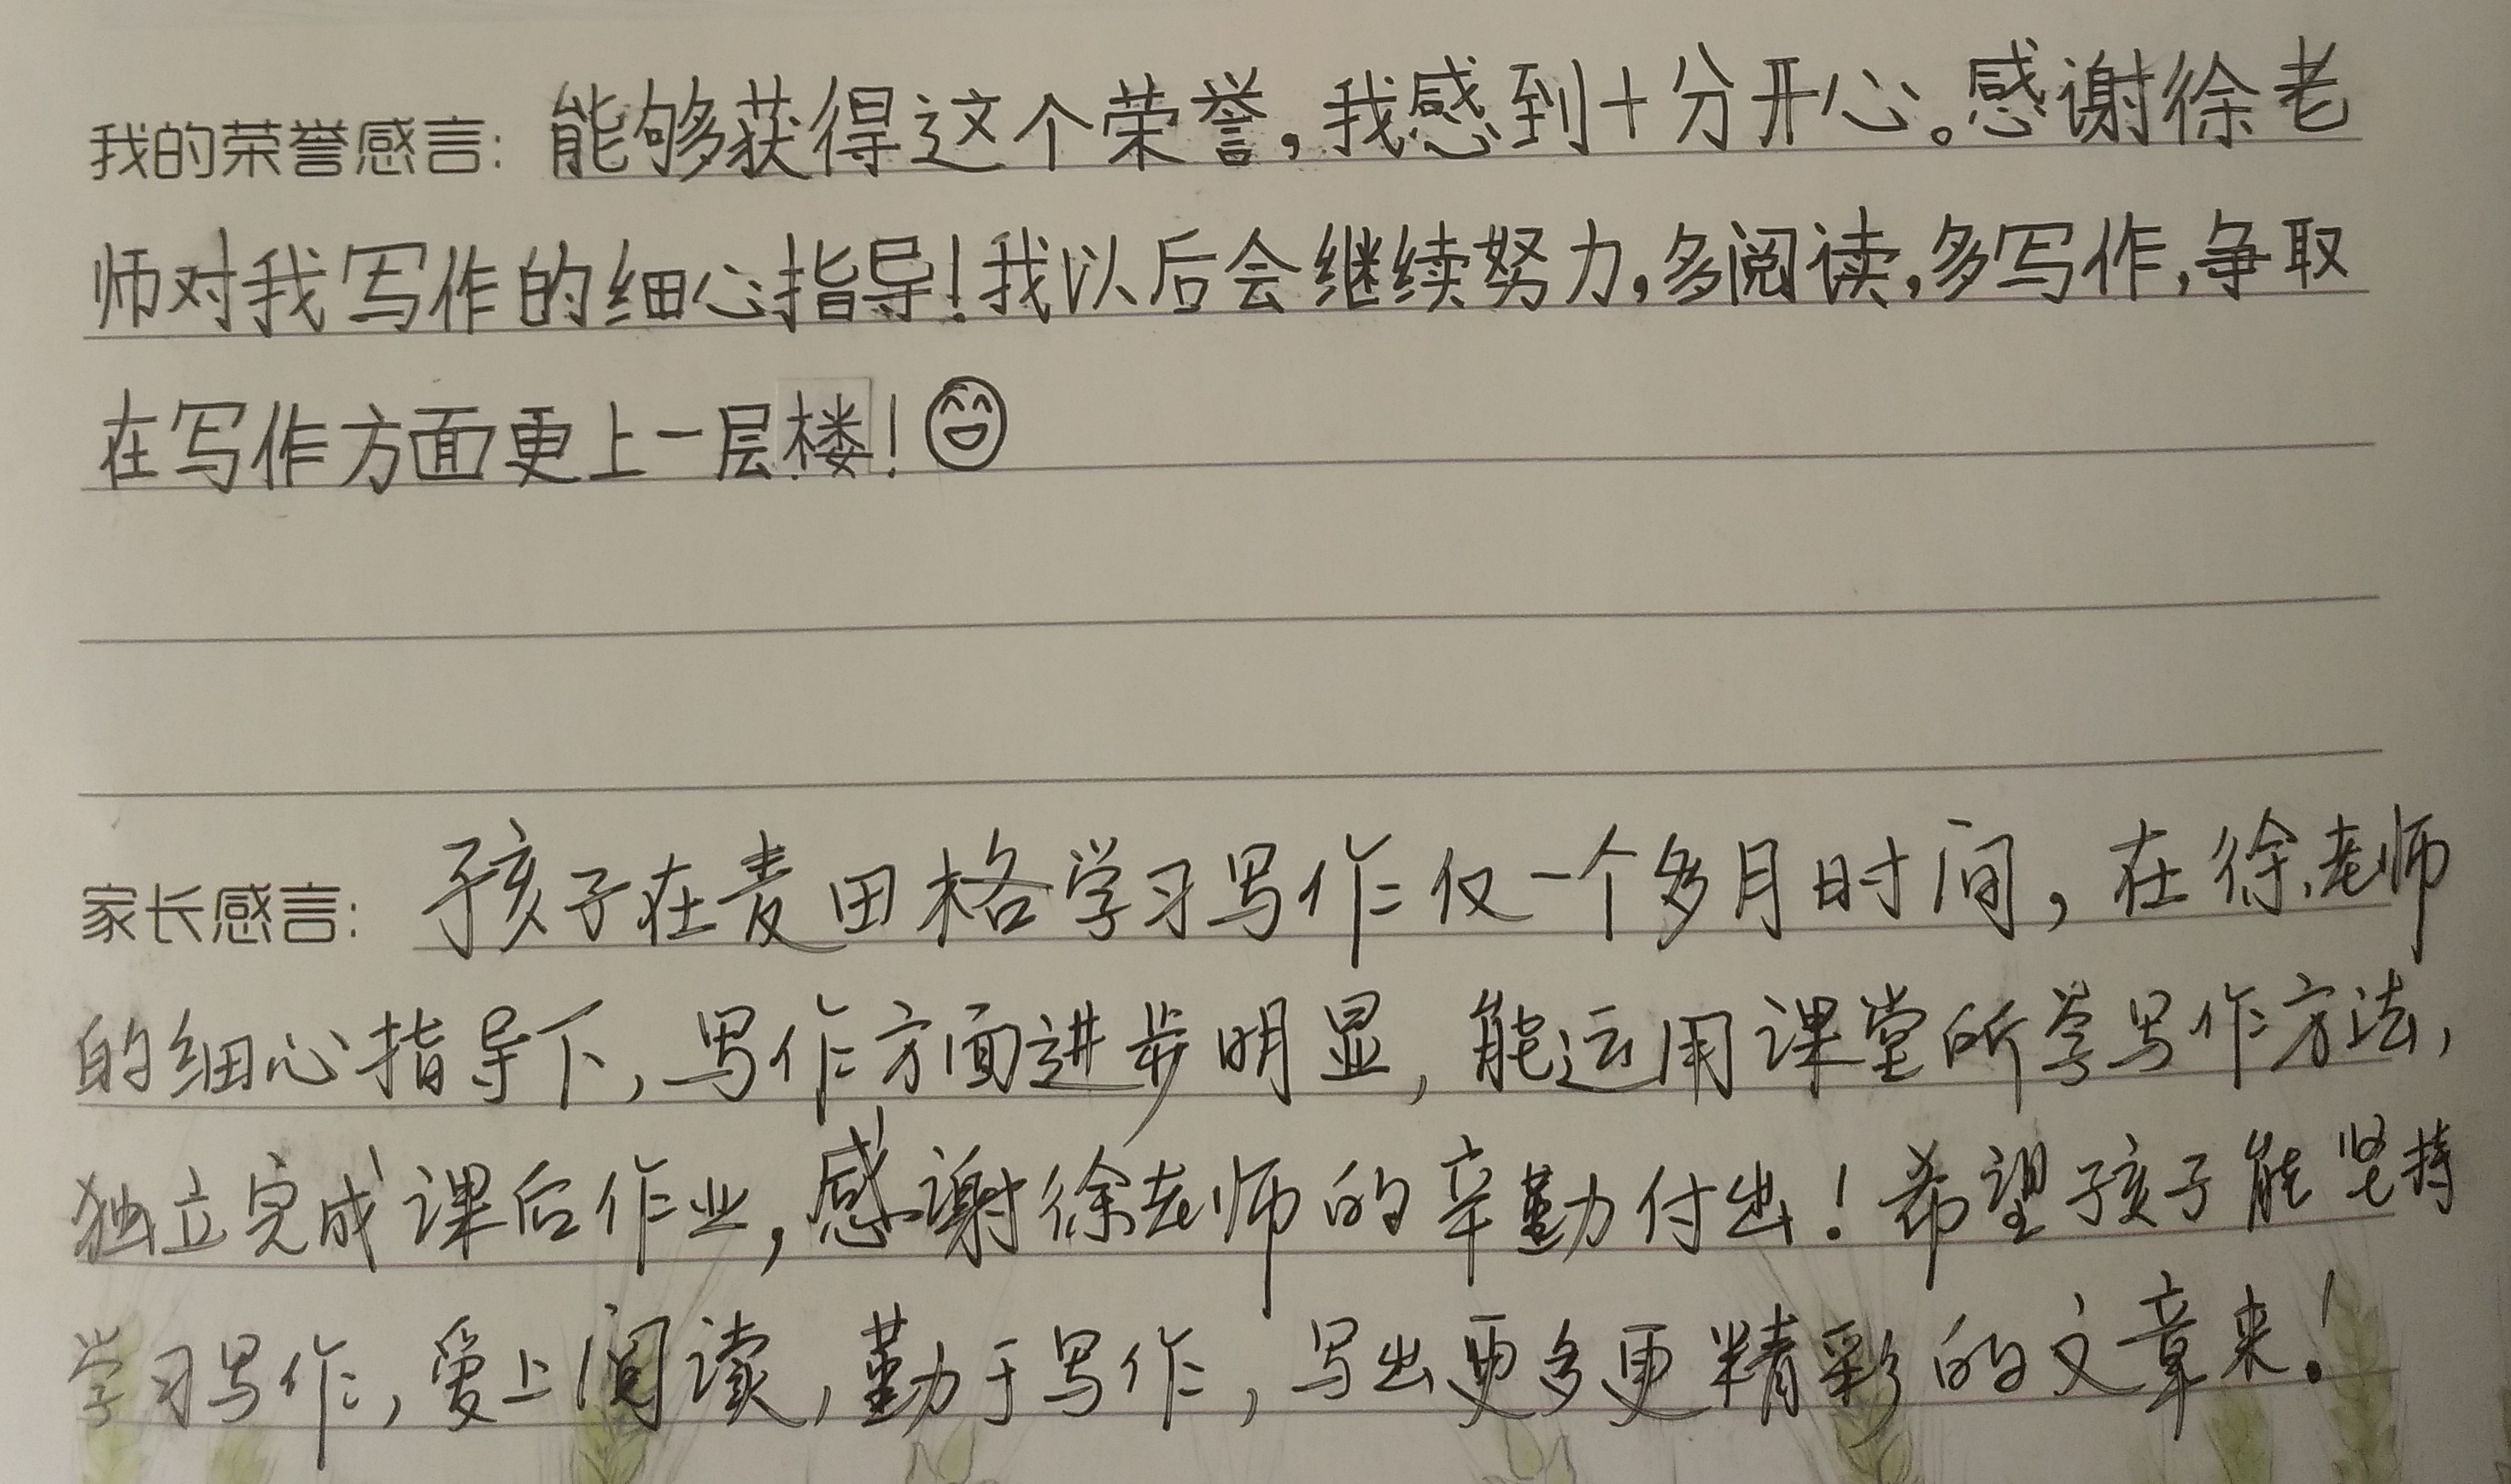 我的荣誉感言：能够获得这个荣誉，我感到十分开心。感谢徐老
师对我写作的细心指导！我以后会继续努力，多阅读，多写作，争取
在写作方面更上一层楼！
家长感言：孩子在麦田格学习写作仅一个多月时间，在徐老师
的细心指导下，写作方面进步明显，能运用课堂所学写作方法，
独立完成课后作业，感谢徐老师的辛勤付出！希望孩子能坚持
学习写作，爱上阅读，勤于写作，写出更多更精彩的文章来！